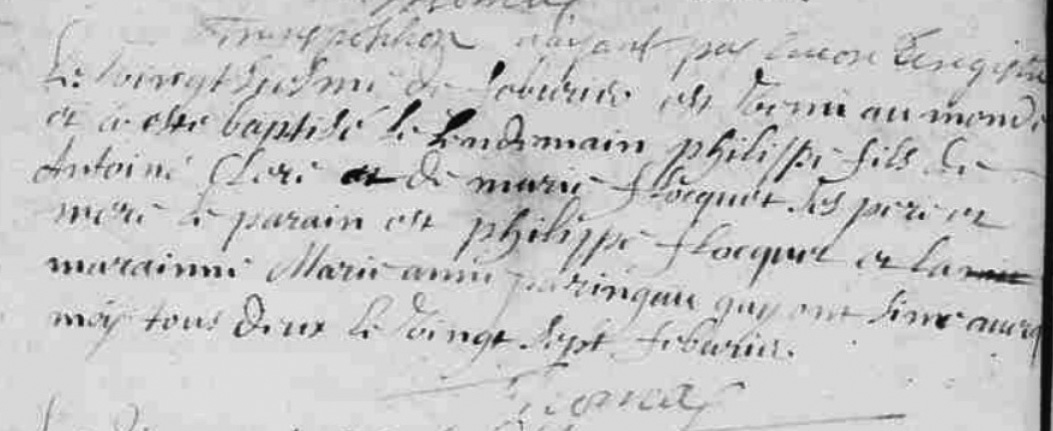 Transposition n'ayant pas encore
Le vingt de feburier est venu au monde
et a esté baptisé le lendemain philippe fils de
Antoine et de marie flocquet ses pere et
mere le parain est philippe flocquet et la
marainne Marie anne qui ont signe avecq
moy tous deux le vingt sept feburier.